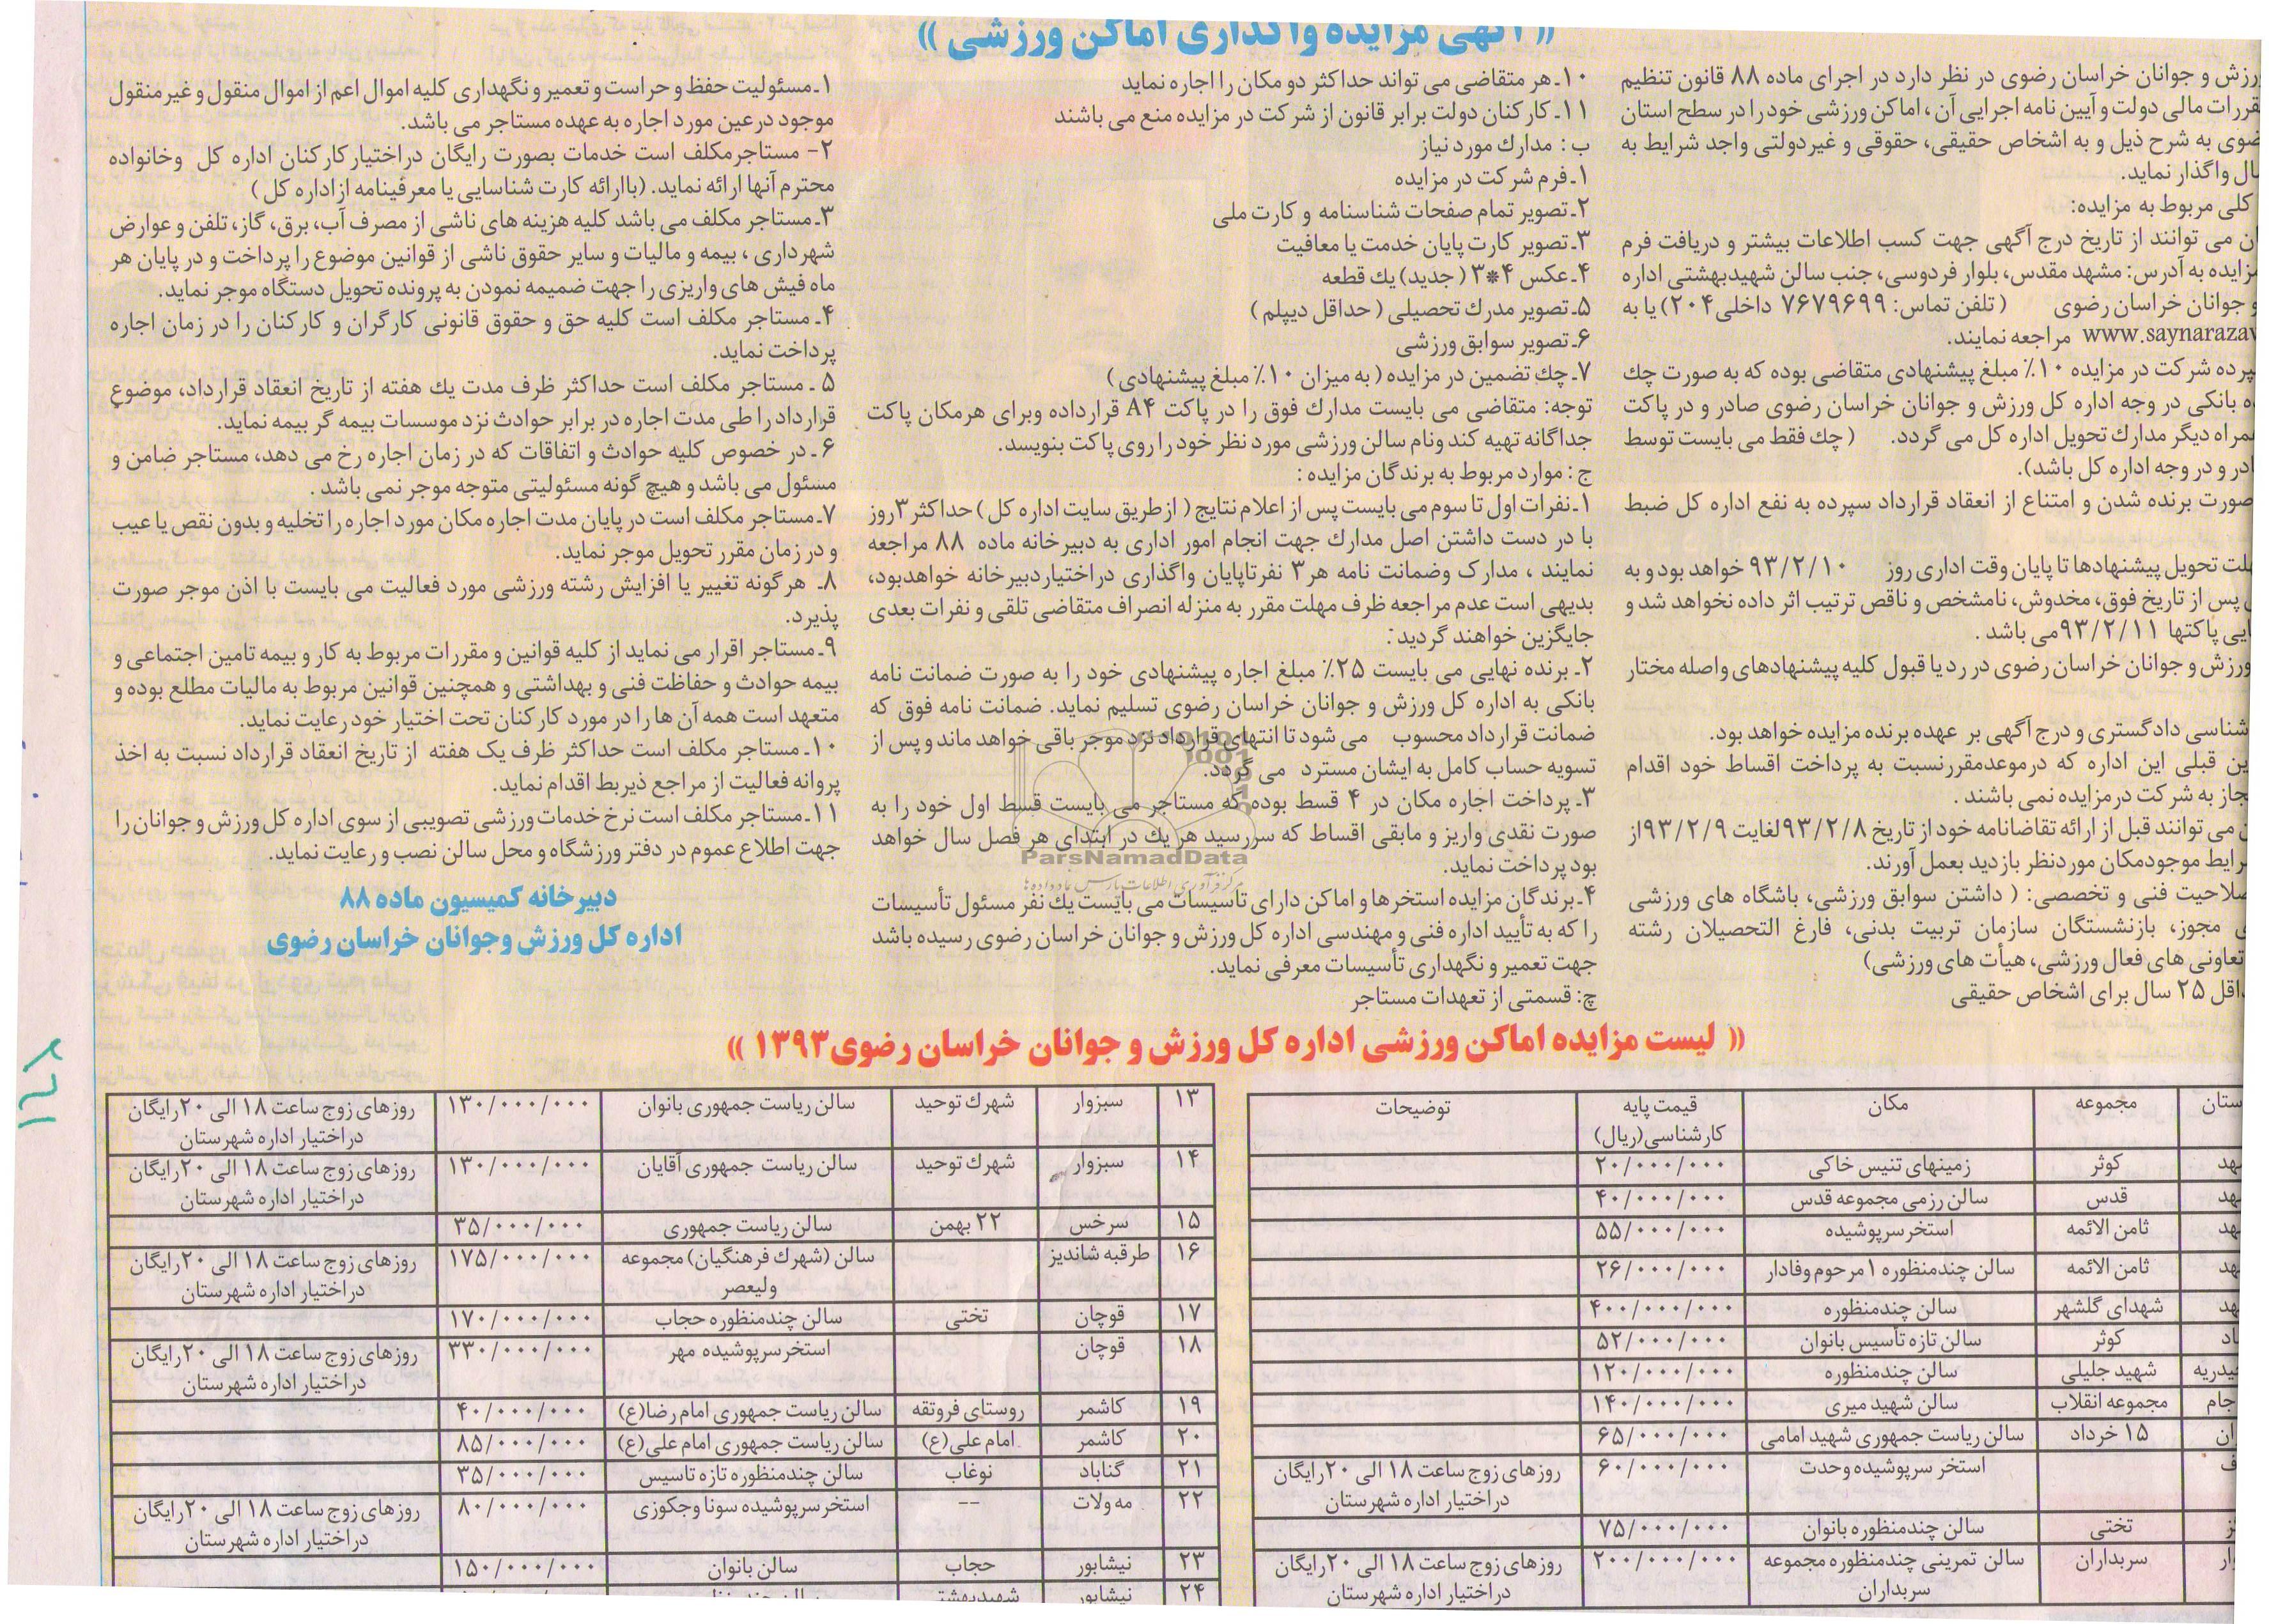 « آگهی مزایده واگذاری اماکن ورزشی »
ورزش و جوانان خراسان رضوی در نظر دارد در اجرای ماده ۸۸ قانون تنظیم
مقررات مالی دولت و آیین نامه اجرایی آن، اماکن ورزشی خود را در سطح استان
رضوی به شرح ذیل و به اشخاص حقیقی، حقوقی و غیردولتی واجد شرایط به
واگذار نماید.
کلی مربوط به مزایده:
می توانند از تاریخ درج آگهی جهت کسب اطلاعات بیشتر و دریافت فرم
مزایده به آدرس: مشهد مقدس، بلوار فردوسی، جنب سالن شهیدبهشتی اداره
و جوانان خراسان رضوی (تلفن تماس: ۷۶۷۹۶۹۹ داخلی ۲۰۴) یا به
www.saynaraza مراجعه نمایند.
سپرده شرکت در مزایده ۱۰٪ مبلغ پیشنهادی متقاضی بوده که به صورت چك
بانکی در وجه اداره کل ورزش و جوانان خراسان رضوی صادر و در پاکت
همراه دیگر مدارك تحویل اداره کل می گردد. (چك فقط می بایست توسط
و در وجه اداره کل باشد).
صورت برنده شدن و امتناع از انعقاد قرارداد سپرده به نفع اداره کل ضبط
مهلت تحویل پیشنهادها تا پایان وقت اداری روز ۹۳/۲/۱۰ خواهد بود و به
پس از تاریخ فوق، مخدوش، نامشخص و ناقص ترتیب اثر داده نخواهد شد و
پاکتها ۹۳/۲/۱۱ می باشد.
ورزش و جوانان خراسان رضوی در رد یا قبول کلیه پیشنهادهای واصله مختار
دادگستری و درج آگهی بر عهده برنده مزایده خواهد بود.
قبلی این اداره که درموعدمقررنسبت به پرداخت اقساط خود اقدام
مجاز به شرکت درمزایده نمی باشند.
می توانند قبل از ارائه تقاضانامه خود از تاریخ ۹۳/۲/۸ لغایت ۹۳/۲/۹ از
شرایط موجودمکان موردنظر بازدید بعمل آورند.
صلاحیت فنی و تخصصی: (داشتن سوابق ورزشی، باشگاه های ورزشی
مجوز، بازنشستگان سازمان تربیت بدنی، فارغ التحصیلان رشته
تعاونی های فعال ورزشی، هیأت های ورزشی)
۲۵ سال برای اشخاص حقیقی
۱۰ـ هر متقاضی می تواند حداکثر دو مکان را اجاره نماید
۱۱ـ کارکنان دولت برابر قانون از شرکت در مزایده منع می باشند
ب: مدارك مورد نیاز
۱ـ فرم شرکت در مزایده
۲ـ تصویر تمام صفحات شناسنامه و کارت ملی
۳ـ تصویر کارت پایان خدمت یا معافیت
۴ـ عکس ۴*۳ (جدید) یك قطعه
۵ـ تصویر مدرك تحصیلی (حداقل دیپلم)
۶ـ تصویر سوابق ورزشی
۷ـ چك تضمین در مزایده (به میزان ۱۰٪ مبلغ پیشنهادی)
توجه: متقاضی می بایست مدارك فوق را در پاکت A۴ قرارداده وبرای هرمکان پاکت
جداگانه تهیه کند ونام سالن ورزشی مورد نظر خود را روی پاکت بنویسد.
ج: موارد مربوط به برندگان مزایده:
۱ـ نفرات اول تا سوم می بایست پس از اعلام نتایج (ازطریق سایت اداره کل) حداکثر ۳روز
با در دست داشتن اصل مدارك جهت انجام امور اداری به دبیرخانه ماده ۸۸ مراجعه
نمایند، مدارک وضمانت نامه هر۳ نفرتاپایان واگذاری دراختیاردبیرخانه خواهدبود،
بدیهی است عدم مراجعه ظرف مهلت مقرر به منزله انصراف متقاضی تلقی و نفرات بعدی
جایگزین خواهند گردید.
۲ـ برنده نهایی می بایست ۲۵٪ مبلغ اجاره پیشنهادی خود را به صورت ضمانت نامه
بانکی به اداره کل ورزش و جوانان خراسان رضوی تسلیم نماید. ضمانت نامه فوق که
ضمانت قرارداد محسوب می شود تا انتهای قرارداد نزد موجر باقی خواهد ماند و پس از
تسویه حساب کامل به ایشان مسترد می گردد.
۳ـ پرداخت اجاره مکان در ۴ قسط بوده که مستاجر می بایست قسط اول خود را به
صورت نقدی واریز و مابقی اقساط که سررسید هریك در ابتدای هر فصل سال خواهد
بود پرداخت نماید.
۴ـ برندگان مزایده استخرها و اماکن دارای تأسیسات می بایست یك نفر مسئول تأسیسات
را که به تأیید اداره فنی و مهندسی اداره کل ورزش و جوانان خراسان رضوی رسیده باشد
جهت تعمیر و نگهداری تأسیسات معرفی نماید.
چ: قسمتی از تعهدات مستاجر
۱ـ مسئولیت حفظ و حراست و تعمیر و نگهداری کلیه اموال اعم از اموال منقول و غیر منقول
موجود درعین مورد اجاره به عهده مستاجر می باشد.
۲- مستاجرمکلف است خدمات بصورت رایگان دراختیارکارکنان اداره کل وخانواده
محترم آنها ارائه نماید. (باارائه کارت شناسایی یا معرفینامه ازاداره کل)
۳ـ مستاجر مکلف می باشد کلیه هزینه های ناشی از مصرف آب، برق، گاز، تلفن و عوارض
شهرداری، بیمه و مالیات و سایر حقوق ناشی از قوانین موضوع را پرداخت و در پایان هر
ماه فیش های واریزی را جهت ضمیمه نمودن به پرونده تحویل دستگاه موجر نماید.
۴ـ مستاجر مکلف است کلیه حق و حقوق قانونی کارگران و کارکنان را در زمان اجاره
پرداخت نماید.
۵ ـ مستاجر مکلف است حداکثر ظرف مدت یك هفته از تاریخ انعقاد قرارداد، موضوع
قرارداد را طی مدت اجاره در برابر حوادث نزد موسسات بیمه گر بیمه نماید.
۶ ـ در خصوص کلیه حوادث و اتفاقات که در زمان اجاره رخ می دهد، مستاجر ضامن و
مسئول می باشد و هیچ گونه مسئولیتی متوجه موجر نمی باشد.
۷ـ مستاجر مکلف است در پایان مدت اجاره مکان مورد اجاره را تخلیه و بدون نقص یا عیب
و در زمان مقرر تحویل موجر نماید.
۸ـ هرگونه تغییر یا افزایش رشته ورزشی مورد فعالیت می بایست با اذن موجر صورت
پذیرد.
۹ـ مستاجر اقرار می نماید از کلیه قوانین و مقررات مربوط به کار و بیمه تامین اجتماعی و
بیمه حوادث و حفاظت فنی و بهداشتی و همچنین قوانین مربوط به مالیات مطلع بوده و
متعهد است همه آن ها را در مورد کارکنان تحت اختیار خود رعایت نماید.
۱۰ـ مستاجر مکلف است حداکثر ظرف یک هفته از تاریخ انعقاد قرارداد نسبت به اخذ
پروانه فعالیت از مراجع ذیربط اقدام نماید.
۱۱ـ مستاجر مکلف است نرخ خدمات ورزشی تصویبی از سوی اداره کل ورزش و جوانان را
جهت اطلاع عموم در دفتر ورزشگاه و محل سالن نصب و رعایت نماید.
دبیرخانه کمیسیون ماده ۸۸
اداره کل ورزش وجوانان خراسان رضوی
ParsNamadData
مرکز فرآوری اطلاعات پارس نماد داده ها
« لیست مزایده اماکن ورزشی اداره کل ورزش و جوانان خراسان رضوی۱۳۹۳ »
ستان مجموعه مکان قیمت پایه کارشناسی(ریال) توضیحات
هد کوثر زمینهای تنیس خاکی ۲۰/۰۰۰/۰۰۰
هد قدس سالن رزمی مجموعه قدس ۴۰/۰۰۰/۰۰۰
هد ثامن الائمه استخر سرپوشیده ۵۵/۰۰۰/۰۰۰
هد ثامن الائمه سالن چندمنظوره ۱ مرحوم وفادار ۲۶/۰۰۰/۰۰۰
هد شهدای گلشهر سالن چندمنظوره ۴۰۰/۰۰۰/۰۰۰
اد کوثر سالن تازه تأسیس بانوان ۵۲/۰۰۰/۰۰۰
یدریه شهید جلیلی سالن چندمنظوره ۱۲۰/۰۰۰/۰۰۰
جام مجموعه انقلاب سالن شهید میری ۱۴۰/۰۰۰/۰۰۰
ان ۱۵ خرداد سالن ریاست جمهوری شهید امامی ۶۵/۰۰۰/۰۰۰
ف استخر سرپوشیده وحدت ۶۰/۰۰۰/۰۰۰ روزهای زوج ساعت ۱۸ الی ۲۰رایگان
دراختیار اداره شهرستان
ز تختی سالن چندمنظوره بانوان ۷۵/۰۰۰/۰۰۰
ار سربداران سالن تمرینی چندمنظوره مجموعه ۲۰۰/۰۰۰/۰۰۰ روزهای زوج ساعت ۱۸ الی ۲۰رایگان
سربداران دراختیار اداره شهرستان
۱۳ سبزوار شهرك توحید سالن ریاست جمهوری بانوان ۱۳۰/۰۰۰/۰۰۰ روزهای زوج ساعت ۱۸ الی ۲۰رایگان
دراختیار اداره شهرستان
۱۴ سبزوار شهرك توحید سالن ریاست جمهوری آقایان ۱۳۰/۰۰۰/۰۰۰ روزهای زوج ساعت ۱۸ الی ۲۰رایگان
دراختیار اداره شهرستان
۱۵ سرخس ۲۲ بهمن سالن ریاست جمهوری ۳۵/۰۰۰/۰۰۰
۱۶ طرقبه شاندیز سالن (شهرك فرهنگیان) مجموعه ۱۷۵/۰۰۰/۰۰۰ روزهای زوج ساعت ۱۸ الی ۲۰رایگان
ولیعصر دراختیار اداره شهرستان
۱۷ قوچان تختی سالن چندمنظوره حجاب ۱۷۰/۰۰۰/۰۰۰
۱۸ قوچان استخرسرپوشیده مهر ۳۳۰/۰۰۰/۰۰۰ روزهای زوج ساعت ۱۸ الی ۲۰رایگان
دراختیار اداره شهرستان
۱۹ کاشمر روستای فروتقه سالن ریاست جمهوری امام رضا(ع) ۴۰/۰۰۰/۰۰۰
۲۰ کاشمر امام علی(ع) سالن ریاست جمهوری امام علی(ع) ۸۵/۰۰۰/۰۰۰
۲۱ گناباد نوغاب سالن چندمنظوره تازه تاسیس ۳۵/۰۰۰/۰۰۰
۲۲ مه ولات -- استخر سرپوشیده سونا وجکوزی ۸۰/۰۰۰/۰۰۰ روزهای زوج ساعت ۱۸ الی ۲۰رایگان
دراختیار اداره شهرستان
۲۳ نیشابور حجاب سالن بانوان ۱۵۰/۰۰۰/۰۰۰
۲۴ نیشابور شهیدبهشتی